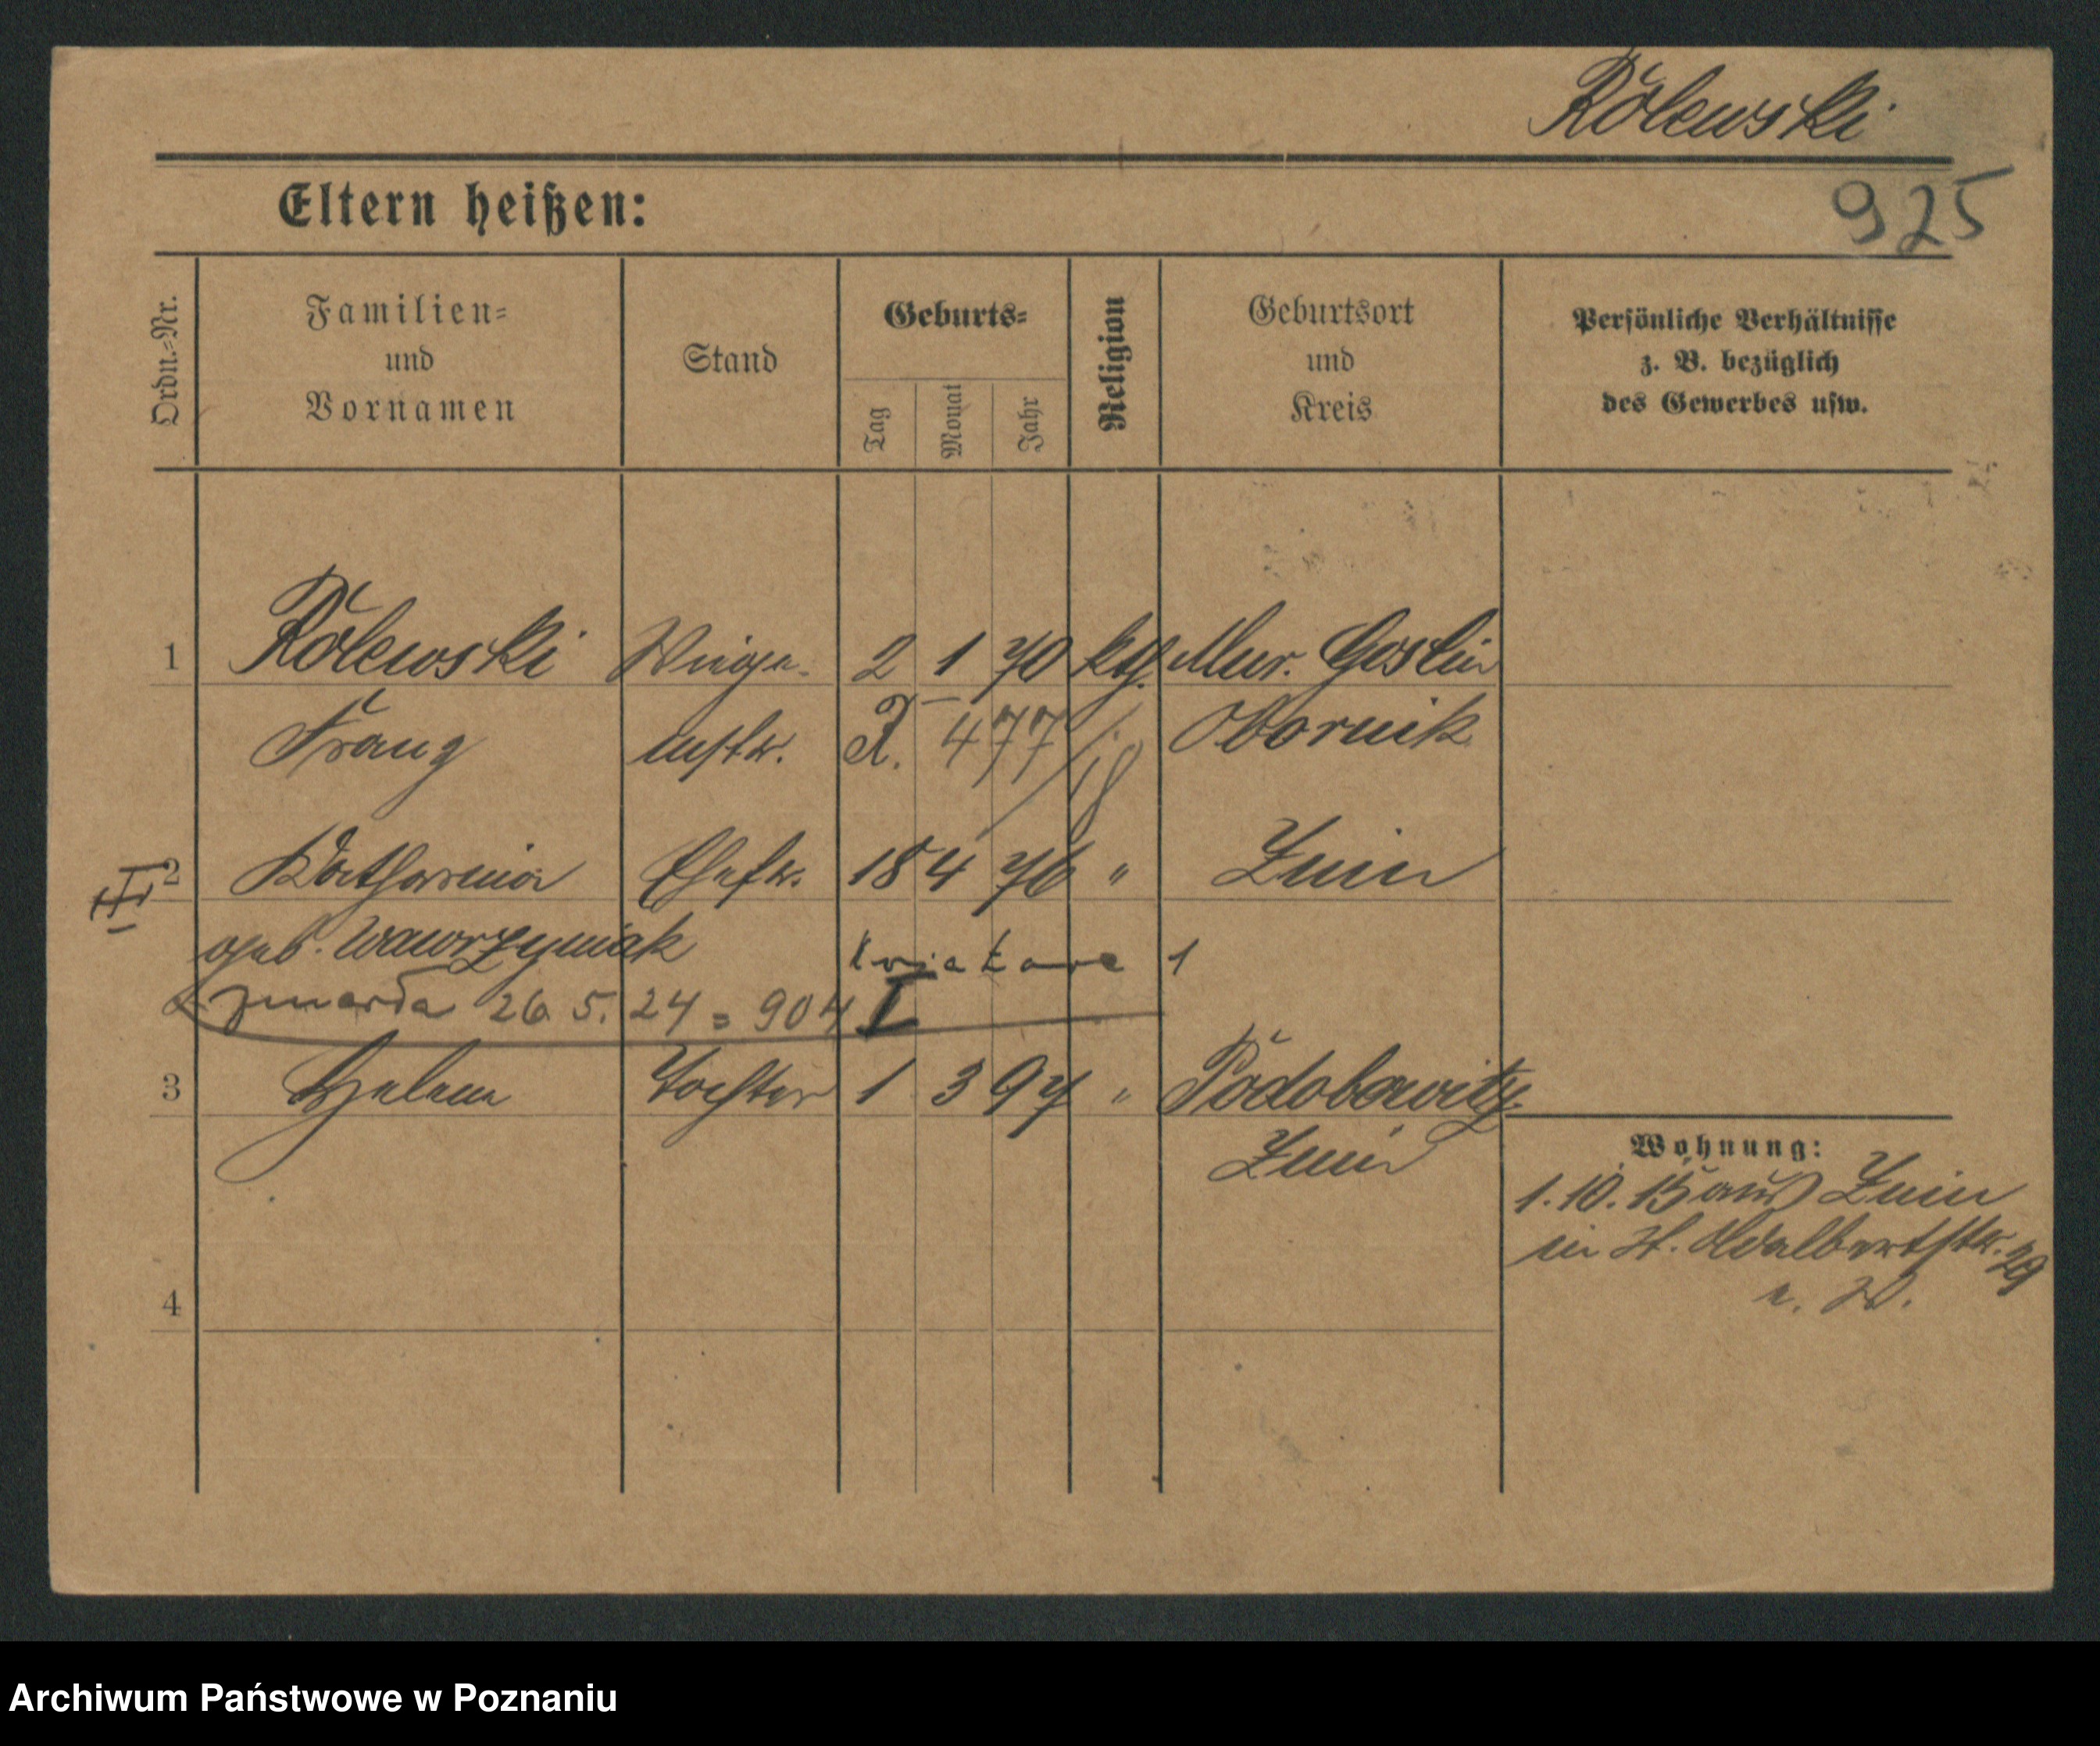 Rolewski
Eltern heißen:
925
Ordn.-Nr.
Familien-
und
Vornamen
Stand
Geburts-
Tag
Monat
Jahr
Religion
Geburtsort
und
Kreis
Persönliche Verhältnisse
z. B. bezüglich
des Gewerbes usw.
1 Rolewski 2 1 70 kth. Mur. Goslin
Franz 477/18 Obornik
2 Katharina Ehefr. 18 4 76 " Znin
geb. Wawrzyniak
zmarła 26.5.24 = 904 I
3 Helene Tochter 1 3 97 " Podobowitz
Znin
Wohnung:
1.10.15 aus Znin
in St. Adalbertstr. 29
4
Archiwum Państwowe w Poznaniu